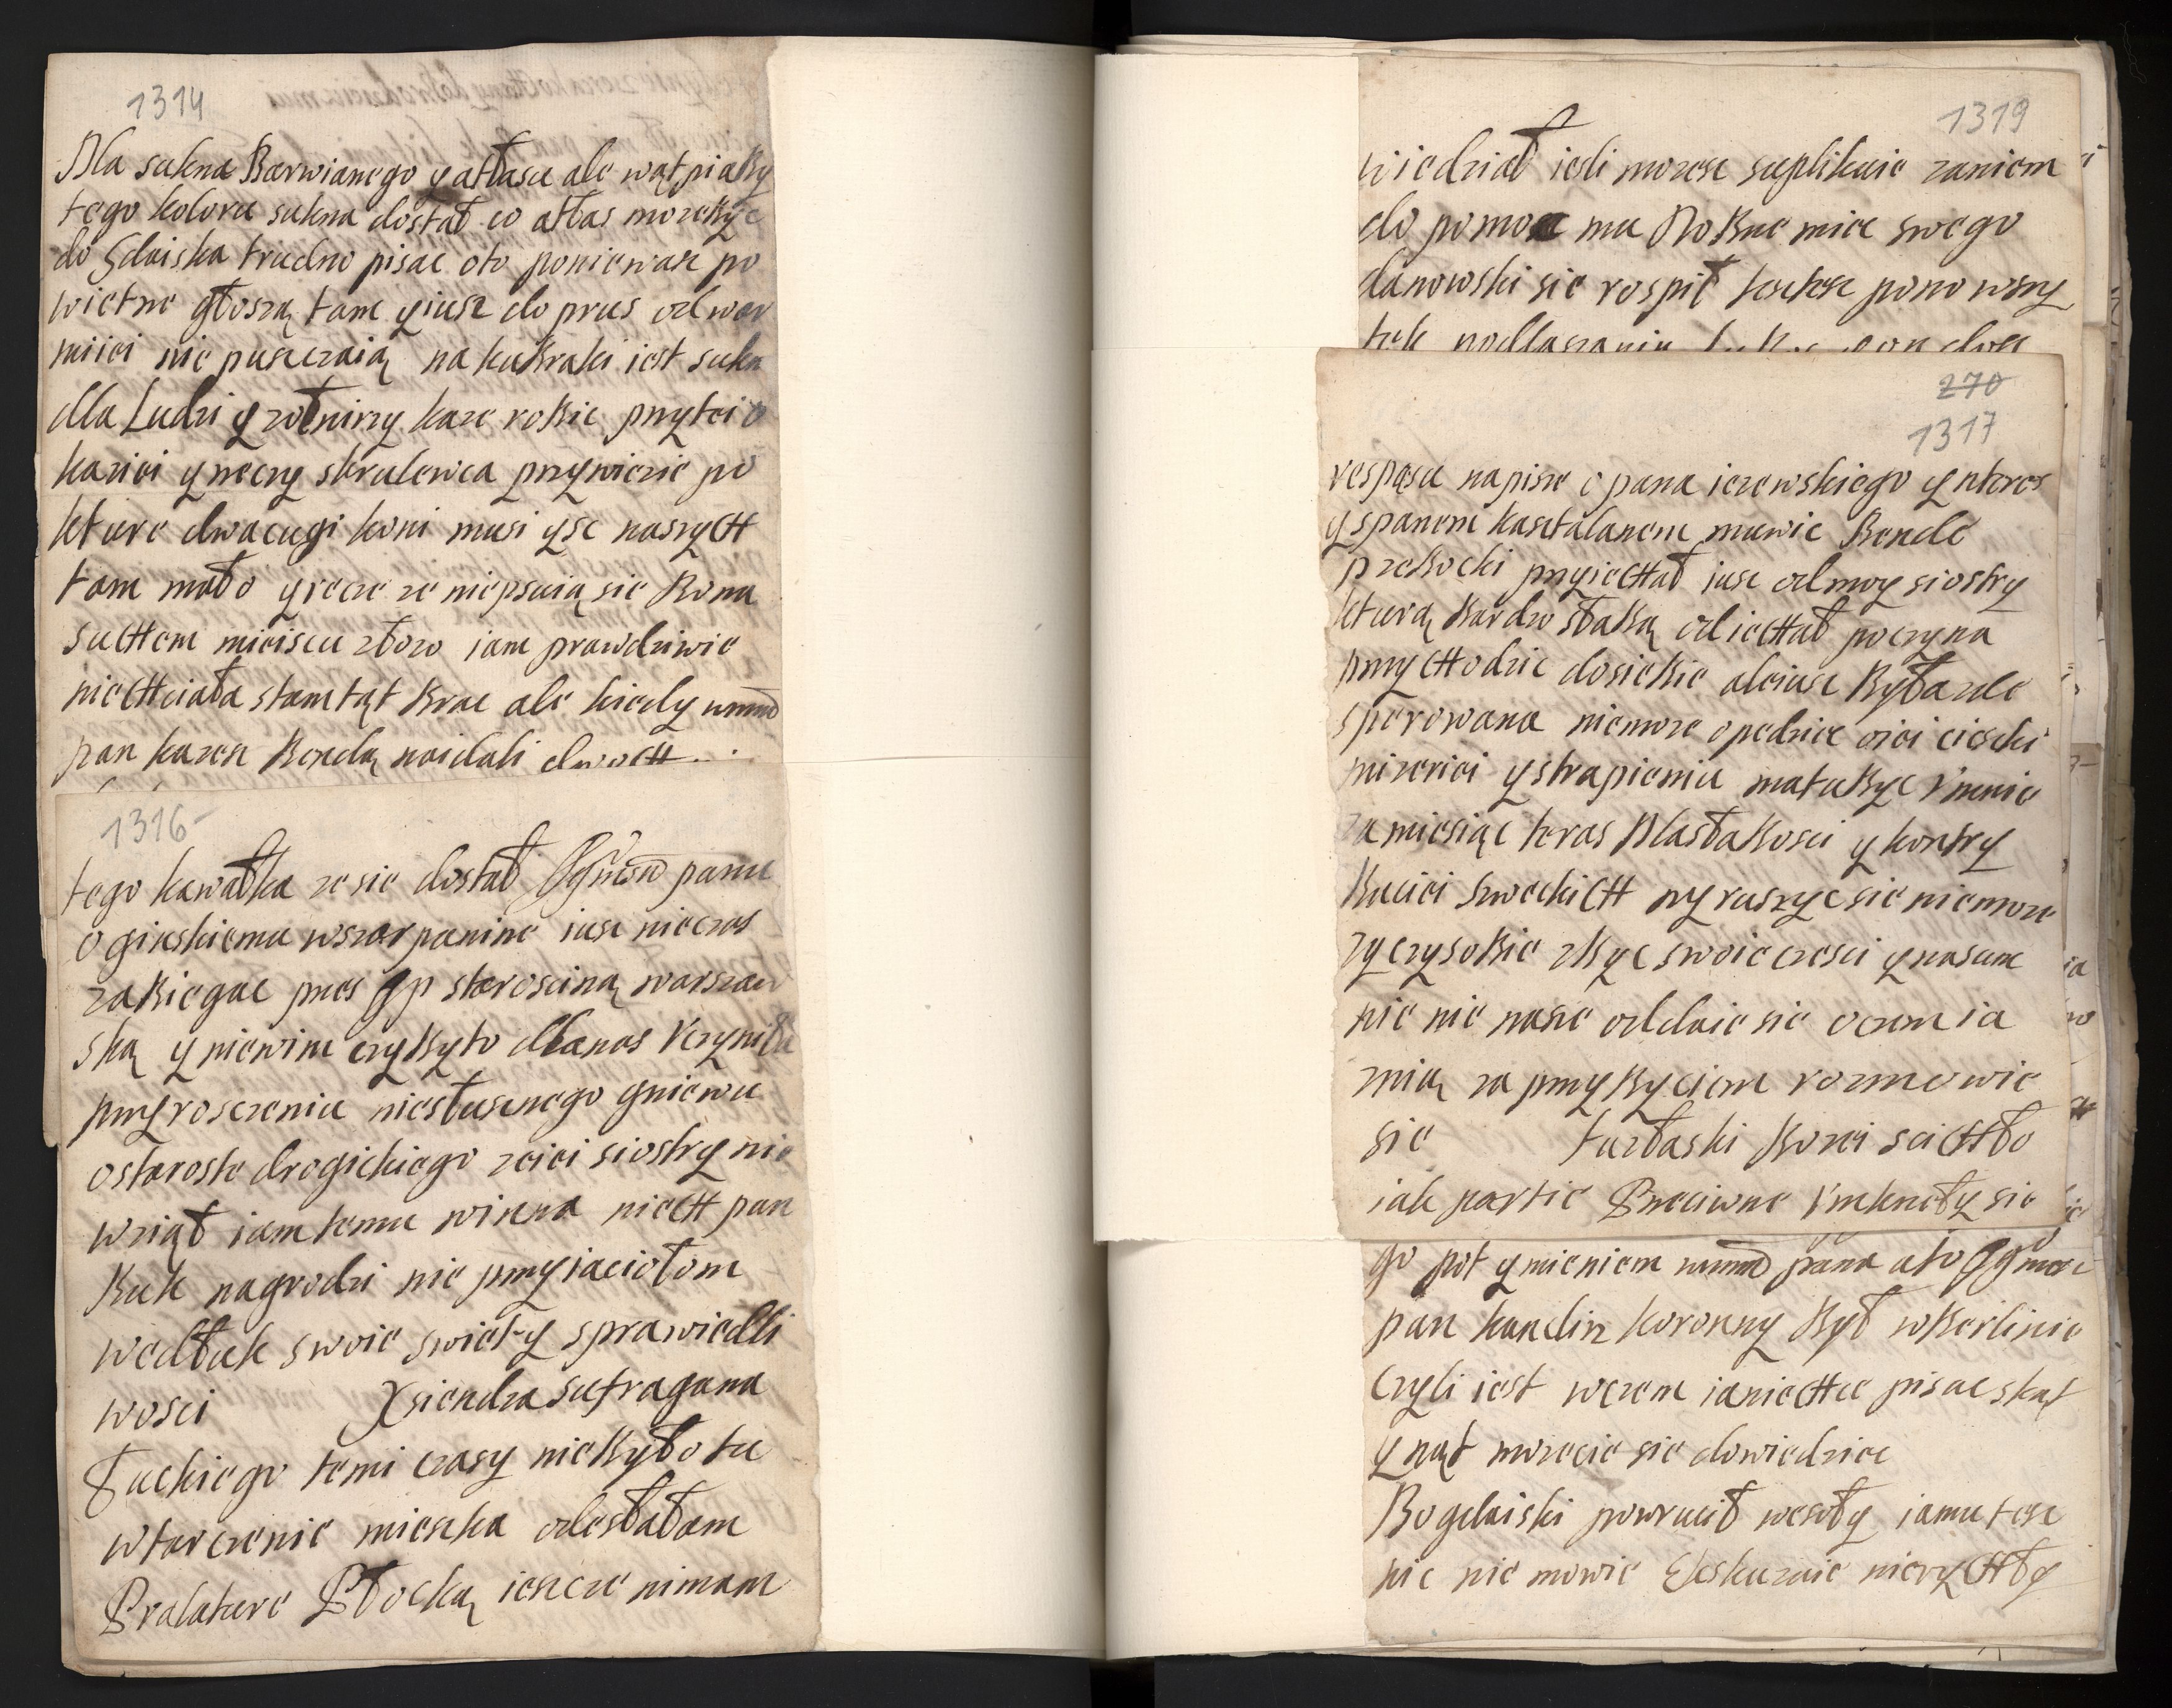 1314
Dla sukna Barwianego y atłasu ale wątpia By
tego koloru sukna dostał co atłas moze Byc
do Gdaiska trudno pisac oto poniewasz po
wietrze głoszą tam y iusz do prus od war
miei nie puszczaią na kuBraki iest sukn
dla Ludzi y zołnirzy kaze roBic przytei o
kaziei y rzeczy skrulewca przywiezie po
kture dwa cugi koni musi ysc naszyCH
tam mało y recze ze niepsuią sie Bom u
suCHem mieiscu złozo iam prawdziwie
nieCHciała stamtąt Brac ale kiedy wmm
pan kazesz Bendą naidali dwoCH
1316
tego kawałka ze sie dostał panu
oginskiemu wszarpanine iusz nieczas
zaBiegac przes Jp starosciną warszaw
ską y niewim czyBy to dlanas Vczyniła
przyroszczeniu niesłusznego gniewu
o staroste drogickiego zeiei siostry nie
wziął iam temu winna nieCH pan
Buk nagrodzi nie przyiaciołom
wedłuk swoie swiety sprawiedli
wosci Xsiendza sufragana
Łuckiego temi czasy nieByło tu
wtorczenie mieszka odesłałam
Pralature Płocką ieszcze nimam
1319
wiedział iesli mozesz suplikuie zaniem
do pomoc mu noBne mice swego
danowski sie rospił takze pono wszy
270
1317
respąsu napisze o pana iezewskiego ynteres
y spanem kasztalanem muwic Bende
przeBocki przyieCHał iusz odmoy siostry
kturą Bardzo słaBą odieCHał poczyna
przyCHodzic dosieBie aleiusz Była zde
sperowana niemoze opedziec oiei cieszki
mizeriei y strapieniu matuByc Vmnie
za miesiąc teras dlasłaBosci y kontry
Buciei szweckiCH wyruszyc sie niemoze
zyczysoBie zByc swoie czesci y nasum
nie nie nasze oddaie sie oczem ia
znią za przyByciem rozmowie
sie tarłaski Borei scieCHło
iak partie Przeciwne Vmkneły sie
go pot ymieniem wmm pana a to Jgmosc
pan kanclirz koronny Był wBerlinie
czyli iest wczem ianieCHce pisac skąt
y nąt mozecie sie dowiedziec
Bogdaiski powrucił wesoły iamu tesz
nic nie mowie Eskuzuie nieryCHły